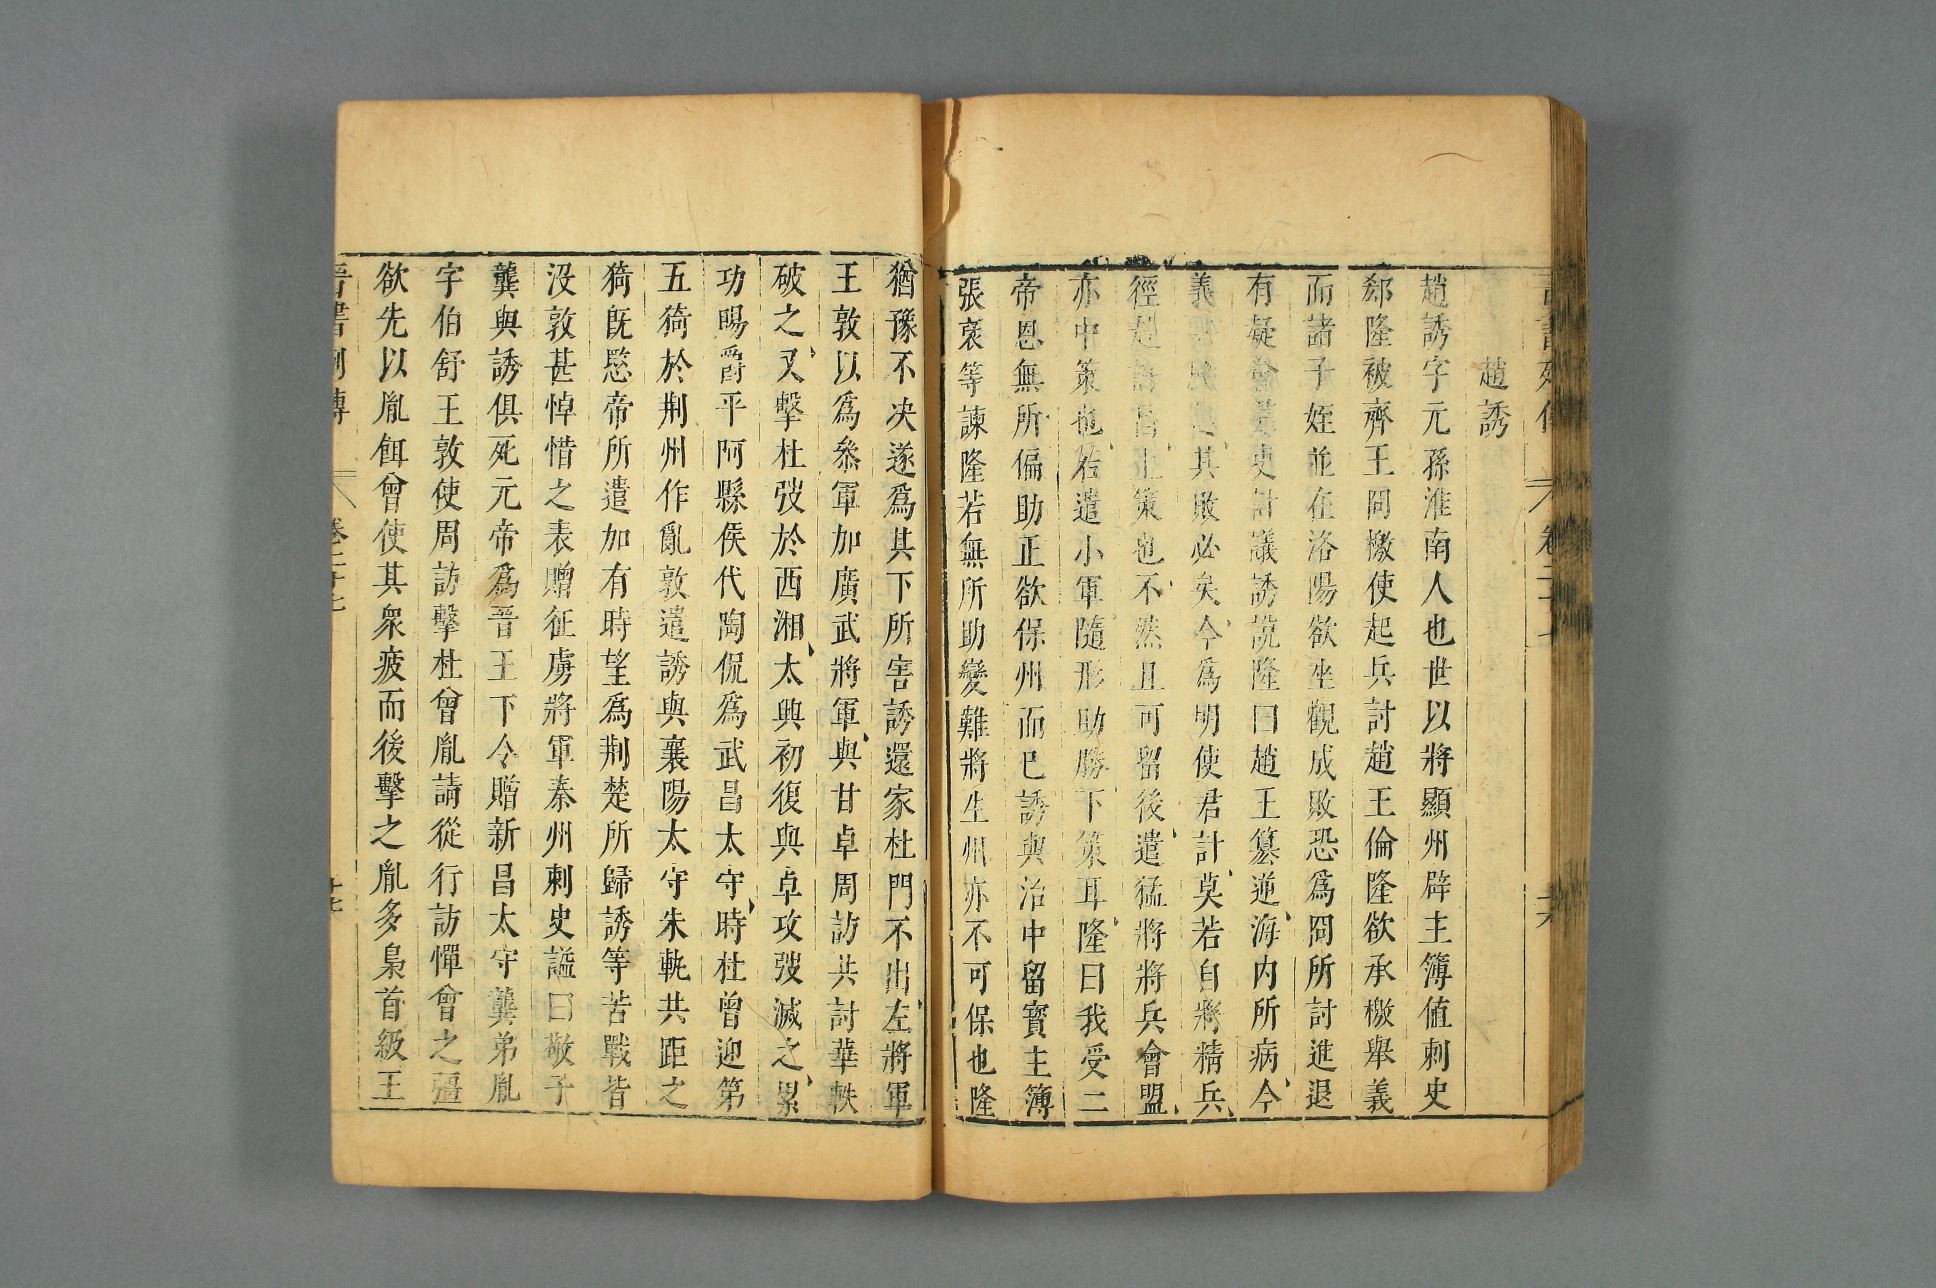 趙誘
趙誘字元孫淮南人也世以將顯州辟主簿值刺史
郄隆被齊王冏檄使起兵討趙王倫隆欲承檄舉義
而諸子姪並在洛陽欲坐觀成敗恐爲冏所討進退
有疑會羣吏計議誘說隆曰趙王篡逆海内所病今
義兵飈起其敗必矣今爲明使君計莫若自將精兵
徑赴許昌上策也不然且可留後遣猛將將兵會盟
亦中策也若遣小軍隨形助勝下策耳隆曰我受二
帝恩無所偏助正欲保州而已誘與治中留寶主簿
張褒等諫隆若無所助變難將生州亦不可保也隆
猶豫不决遂爲其下所害誘還家杜門不出左將軍
王敦以爲叅軍加廣武將軍與甘卓周訪共討華軼
破之又擊杜弢於西湘太興初復與卓攻弢滅之累
功賜爵平阿縣侯代陶侃爲武昌太守時杜曾迎第
五猗於荆州作亂敦遣誘與襄陽太守朱軌共距之
猗旣愍帝所遣加有時望爲荆楚所歸誘等苦戰皆
没敦甚悼惜之表贈征虜將軍秦州刺史謚曰敬子
龔與誘俱死元帝爲晋王下令贈新昌太守龔弟胤
字伯舒王敦使周訪擊杜曾胤請從行訪憚曾之彊
欲先以胤餌曾使其衆疲而後擊之胤多梟首級王
晋書列傳 卷二十七 十七